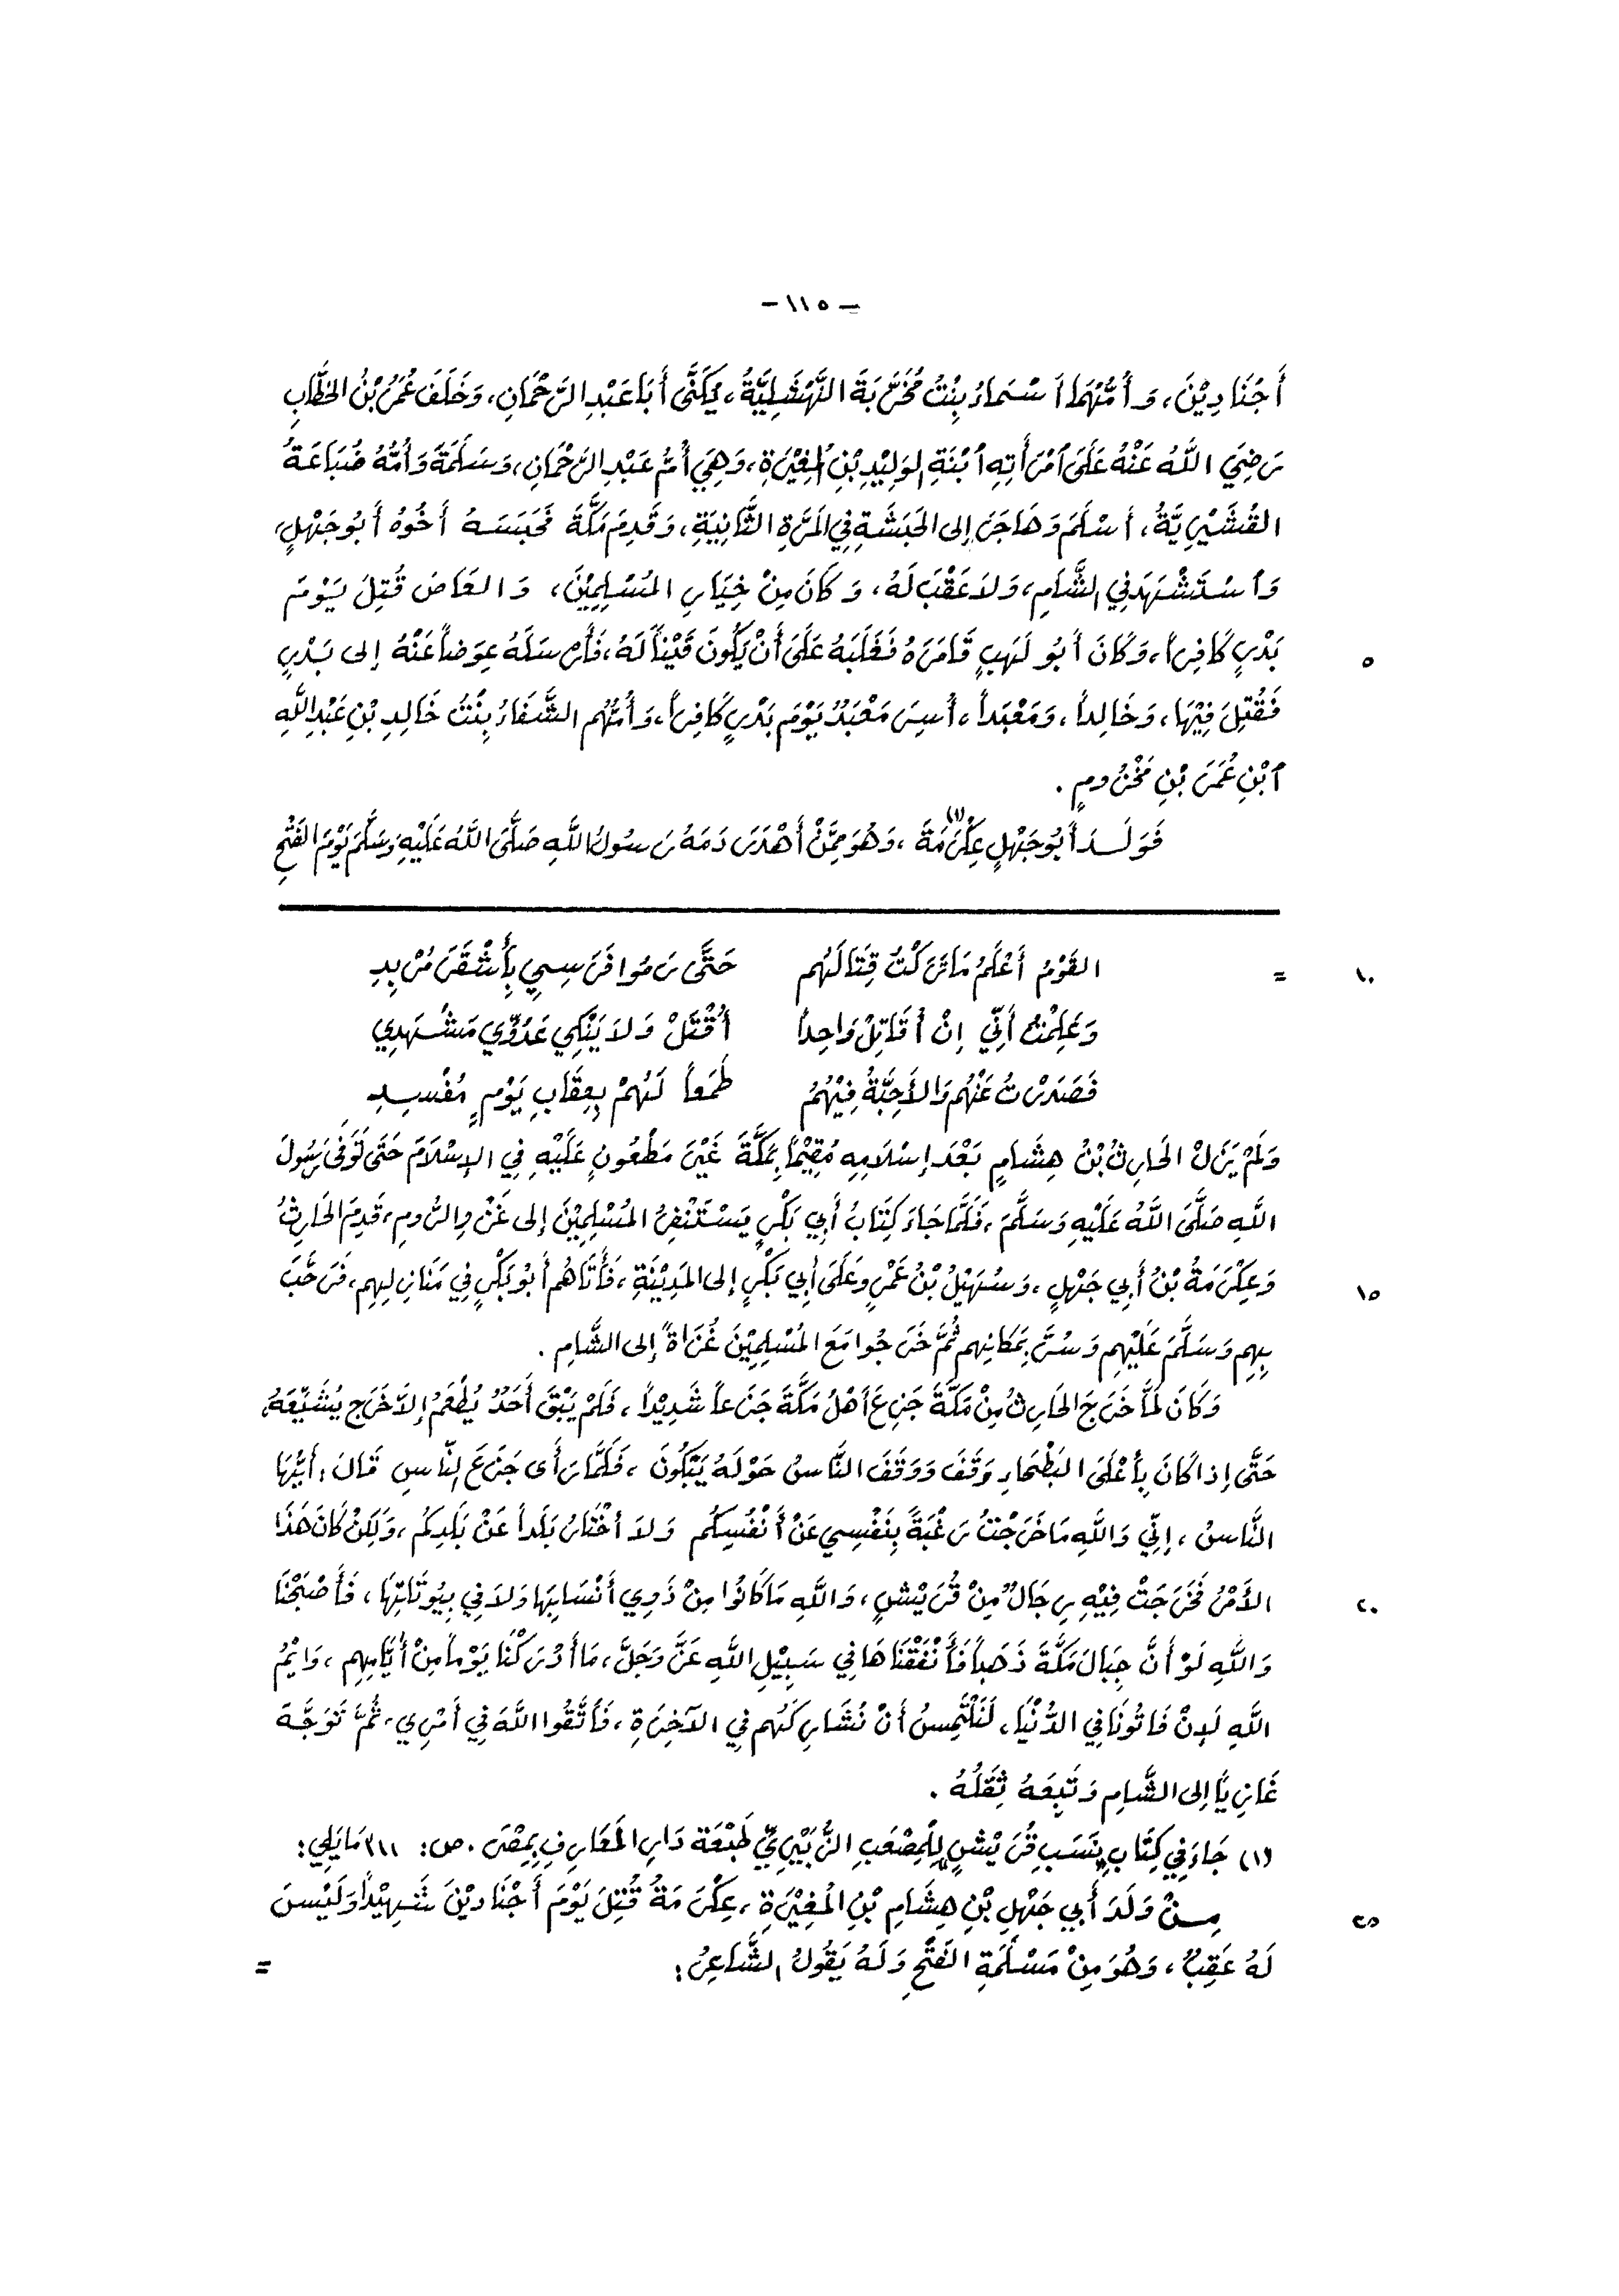 - ١١٥ -
أَجْنَادِيْنَ، وَأُمُّهُمَا أَسْمَاءُ بِنْتُ مُخَرَّبَةَ النَّهْشَلِيَّةُ، يُكَنَّى أَبَا عَبْدِ الرَّحْمَانِ، وَخَلَفَ عُمَرُ بْنُ الخَطَّابِ
رَضِيَ اللَّهُ عَنْهُ عَلَى امْرَأَتِهِ ابْنَةِ الوَلِيْدِ بْنِ المُغِيْرَةِ، وَهِيَ أُمُّ عَبْدِ الرَّحْمَانِ، وَسَلَمَةَ وَأُمُّهُ ضُبَاعَةُ
القُشَيْرِيَّةُ، أَسْلَمَ وَهَاجَرَ إلى الحَبَشَةِ فِي المَرَّةِ الثَّانِيَةِ، وَقَدِمَ مَكَّةَ فَحَبَسَهُ أَخُوْهُ أَبُو جَهْلٍ،
وَاسْتُشْهِدَ فِي الشَّامِ، وَلاَ عَقْبَ لَهُ، وَكَانَ مِنْ خِيَارِ المُسْلِمِيْنَ، وَالعَاصَ قُتِلَ يَوْمَ
بَدْرٍ كَافِراً، وَكَانَ أَبُو لَهَبٍ قَامَرَهُ فَغَلَبَهُ عَلَى أَنْ يَكُونَ قَيْناً لَهُ، فَأَرْسَلَهُ عِوَضاً عَنْهُ إلى بَدْرٍ
٥
فَقُتِلَ فِيْهَا، وَخَالِداً، وَمَعْبَداً، أُسِرَ مَعْبَدُ يَوْمَ بَدْرٍ كَافِراً، وَأُمُّهُم الشَّفَاءُ بِنْتُ خَالِدِ بْنِ عَبْدِ اللَّهِ
ابْنِ عُمَرَ بْنِ مَخْزُومٍ .
فَوَلَدَ أَبُو جَهْلٍ عِكْرِمَةَ(١)، وَهُوَ مِمَّنْ أَهْدَرَ دَمَهُ رَسُولُ اللَّهِ صَلَّى اللَّهُ عَلَيْهِ وَسَلَّمَ يَوْمَ الفَتْحِ
= القَوْمُ أَعْلَمُ مَا تَرَكْتُ قِتَالَهُم حَتَّى رَمُوا فَرَسِي بِأَشْقَرَ مُزْبِدِ
١٠
وَعَلِمْتُ أَنِّي إِنْ أُقَاتِلْ وَاحِداً أُقْتَلْ وَلاَ يَنْكِي عَدُوِّي مَشْهَدِي
فَصَدَرْتُ عَنْهُم وَالأَحِبَّةُ فِيْهُمُ طَمَعاً لَهُمْ بِعِقَابِ يَوْمٍ مُفْسِدِ
وَلَمْ يَزَلْ الحَارِثُ بْنُ هِشَامٍ بَعْدَ إِسْلاَمِهِ مُقِيْمَاً بِمَكَّةَ غَيْرَ مَطْعُونٍ عَلَيْهِ فِي الإِسْلاَمَ حَتَّى تُوُفِّىَ رَسُولَ
اللَّهِ صَلَّى اللَّهُ عَلَيْهِ وَسَلَّمَ، فَلَمَّا جَاءَ كِتَابُ أَبِي بَكْرٍ يَسْتَنْفِرُ المُسْلِمِيْنَ إلى غَزْوِ الرُّومِ، قَدِمَ الحَارِثُ
وَعِكْرِمَةُ بْنُ أَبِي جَهْلٍ، وَسُهَيْلُ بْنُ عَمْرٍو عَلَى أَبِي بَكْرٍ إلى المَدِيْنَةِ، فَأَتَاهُم أَبُو بَكْرٍ فِي مَنَازِلِهِم، فَرَحَّبَ
١٥
بِهِم وَسَلَّمَ عَلَيْهِم وَسُرَّ بِمَكَانِهِم ثُمَّ خَرَجُوا مَعَ المُسْلِمِيْنَ غُزَاةً إلى الشَّامِ .
وَكَانَ لَمَّا خَرَجَ الحَارِثُ مِنْ مَكَّةَ جَزِعَ أَهْلُ مَكَّةَ جَزَعاً شَدِيْداً، فَلَمْ يَبْقَ أَحَدٌ يُطْعَمُ إلاَّ خَرَجَ يُشَيِّعَهُ،
حَتَّى إذا كَانَ بِأَعْلَى البَطْحَاءِ وَقَفَ وَوَقَفَ النَّاسُ حَوْلَهُ يَبْكُونَ، فَلَمَّا رَأى جَزَعَ النَّاسِ قَالَ: أَيُّهَا
النَّاسُ، إنِّي وَاللَّهِ مَا خَرَجْتُ رَغْبَةً بِنَفْسِي عَنْ أَنْفُسِكُم وَلاَ أَخْتَارُ بَلَداً عَنْ بَلَدِكُم، وَلَكِنْ كَانَ هَذَا
الأَمْرُ فَخَرَجَتْ فِيْهِ رِجَالٌ مِنْ قُرَيْشٍ، وَاللَّهِ مَا كَانُوا مِنْ ذَوِي أَنْسَابِهَا وَلاَ فِي بِيُوتَاتِهَا، فَأَصْبَحْنَا
٢٠
وَاللَّهِ لَوْ أَنَّ جِبَالَ مَكَّةَ ذَهَباً فَأَنْفَقْنَاهَا فِي سَبِيْلِ اللَّهِ عَزَّ وَجَلَّ، مَا أَدْرَكْنَا يَوْماً مِنْ أَيَّامِهِم، وَايْمُ
اللَّهِ لَئِنْ فَاتُونَا فِي الدُّنْيَا، لَنَلْتَمِسُ أَنْ نُشَارِكَهُم فِي الآخِرَةِ، فَاتَّقُوا اللَّهَ فِي أَمْرِي، ثُمَّ تَوَجَّهَ
غَازِيَاً إلى الشَّامِ وَتَبِعَهُ ثِقَلُهُ .
(١) جَاءَ فِي كِتَابِ نَسَبِ قُرَيْشٍ لِلْمِصْعَبِ الزُّبَيْرِيِّ طَبْعَة دَارِ المَعَارِفِ بِمِصْرَ . ص: ٣١١ مَا يَلِي:
مِنْ وَلَدَ أَبِي جَهْلِ بْنِ هِشَامِ بْنِ المُغِيْرَةِ، عِكْرِمَةُ قُتِلَ يَوْمَ أَجْنَادِيْنَ شَهِيْداً وَلَيْسَ
٢٥
لَهُ عَقِبٌ، وَهُوَ مِنْ مَسْلَمَةِ الفَتْحِ وَلَهُ يَقُولُ الشَّاعِرُ: =